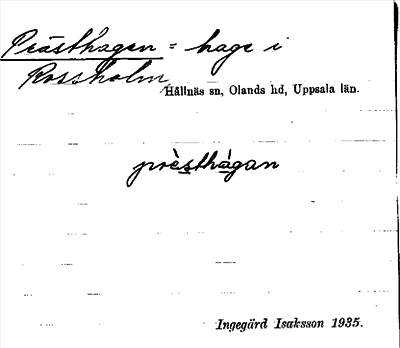 Prästhagen = hage i
Rossholm
Hållnäs sn, Olands hd, Uppsala län.
prèsthágan
Ingegärd Isaksson 1935.